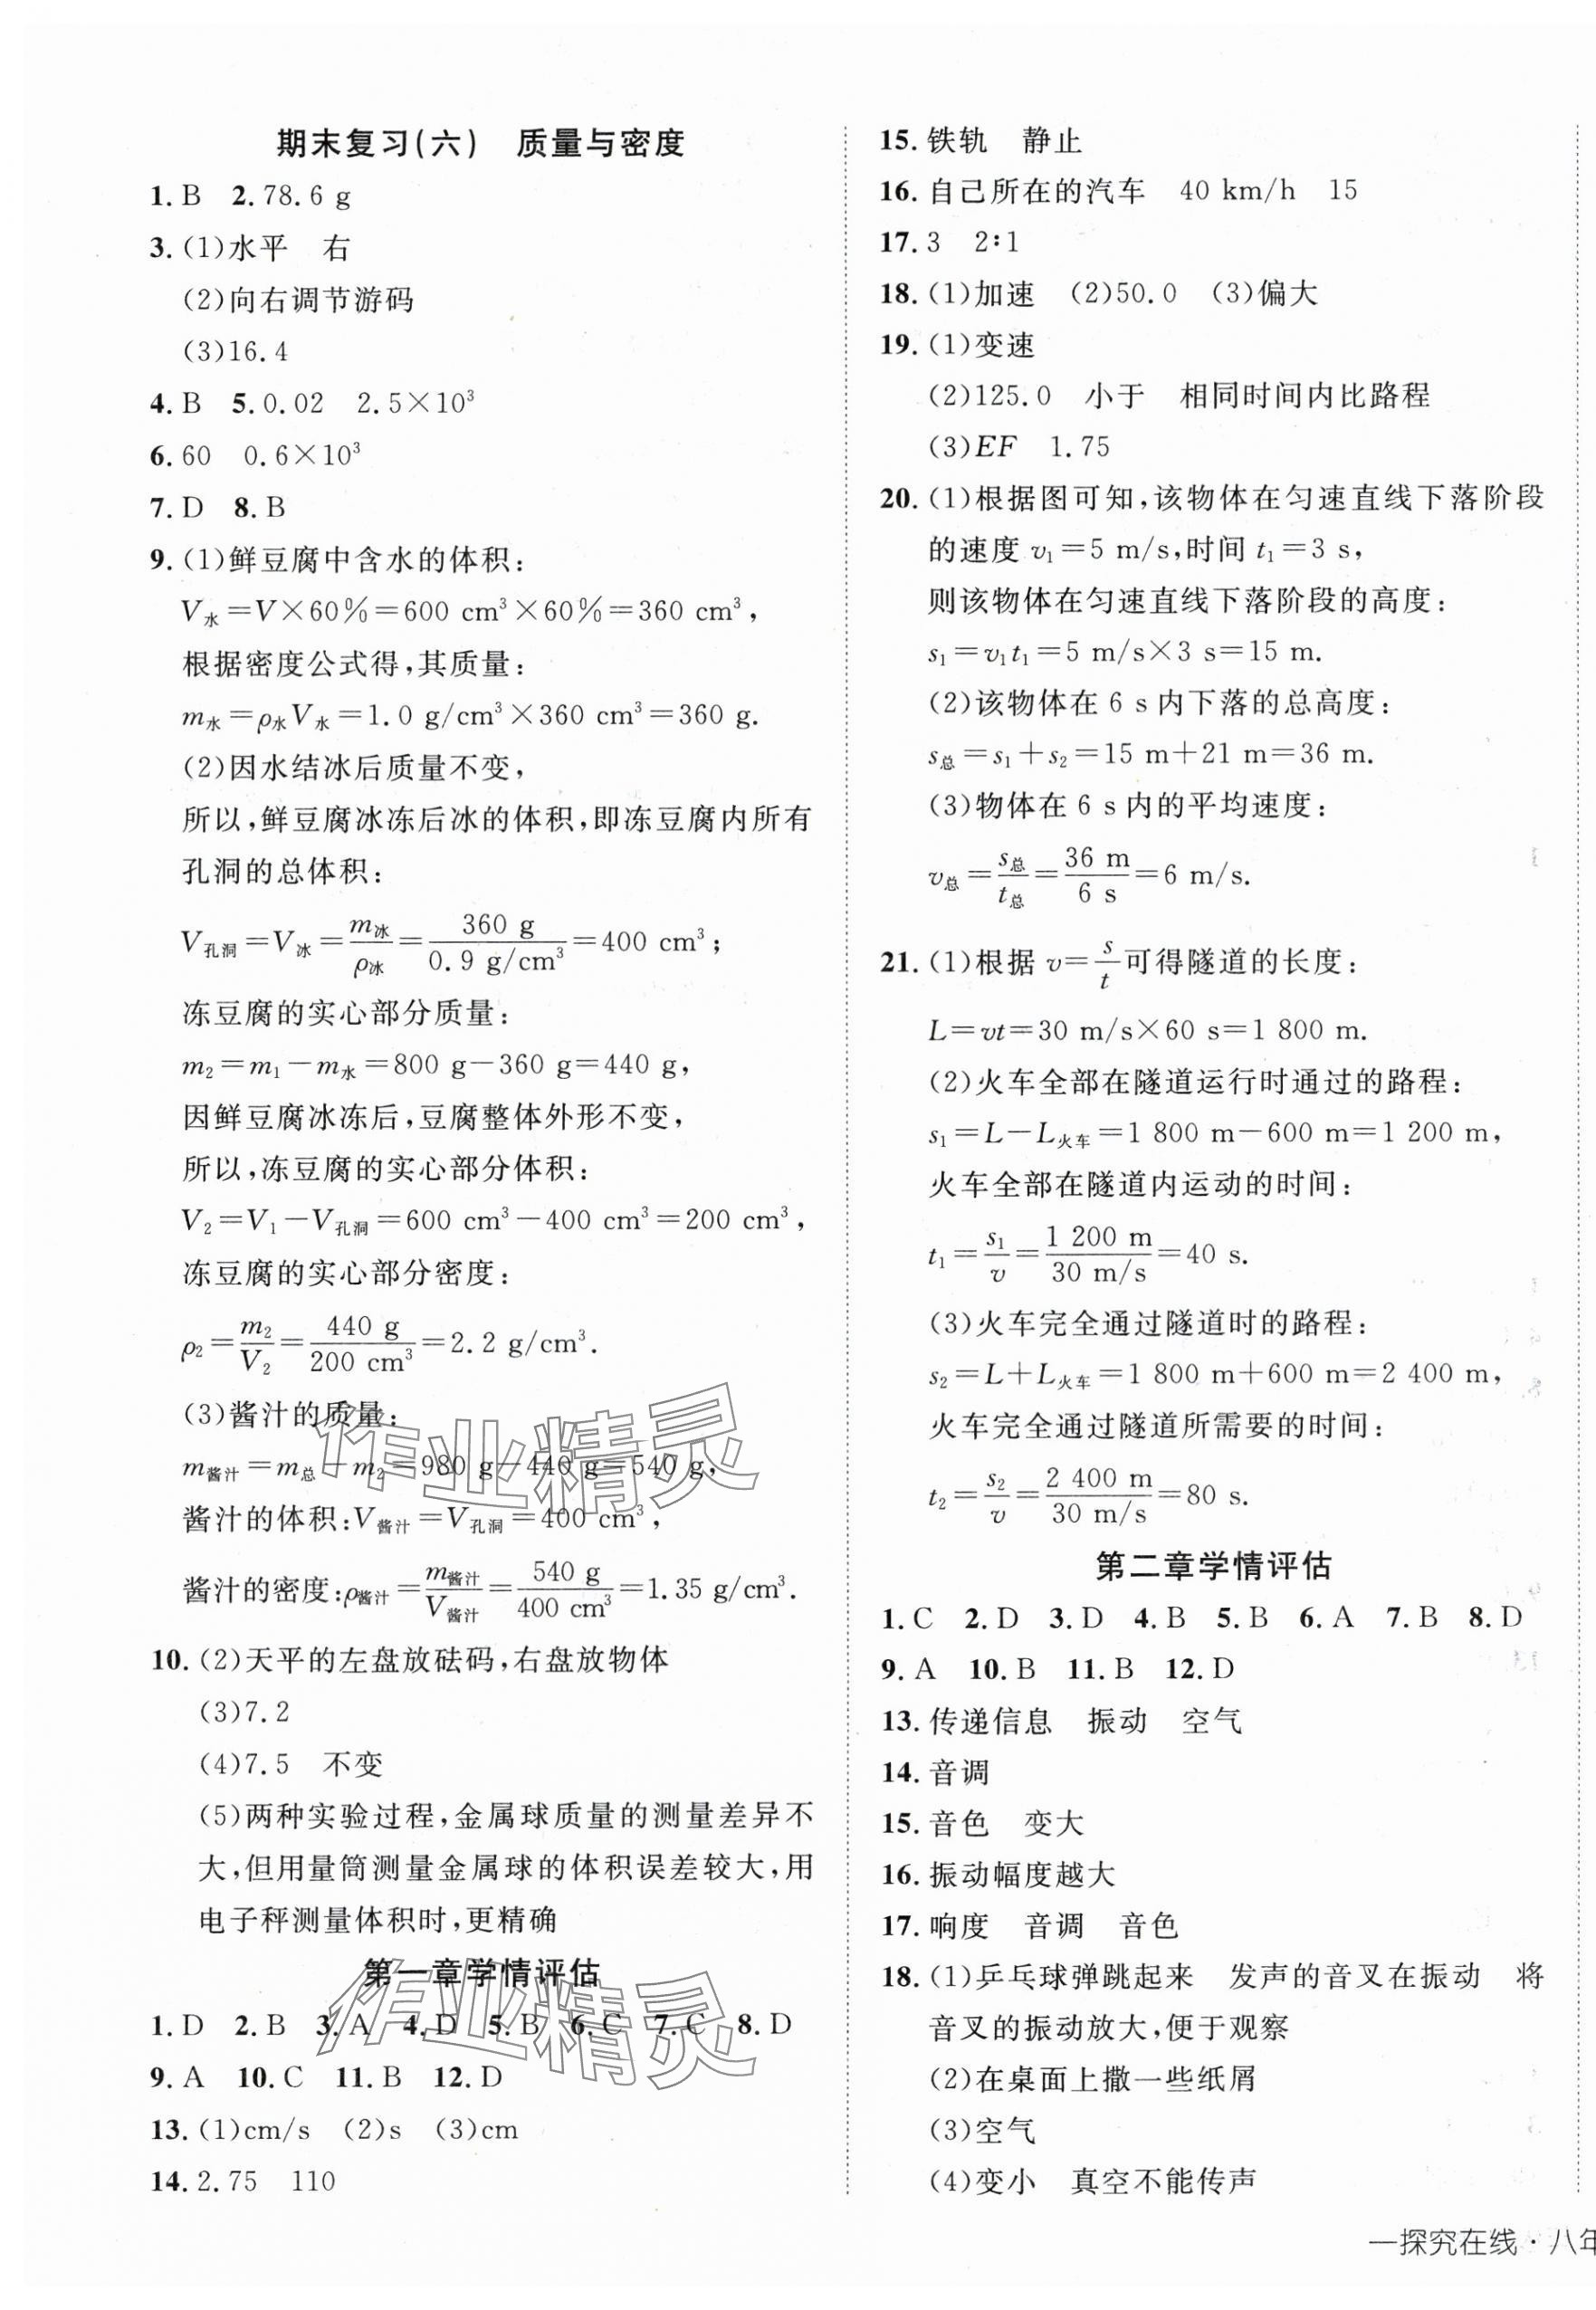 期末复习(六)　质量与密度
1. B　2. 78.6 g
3. (1)水平　右
(2)向右调节游码
(3)16.4
4. B　5. 0.02　2.5×10³
6. 60　0.6×10³
7. D　8. B
9. (1)鲜豆腐中含水的体积:
V水=V×60%=600 cm³×60%=360 cm³,
根据密度公式得,其质量:
m水=ρ水V水=1.0 g/cm³×360 cm³=360 g.
(2)因水结冰后质量不变,
所以,鲜豆腐冰冻后冰的体积,即冻豆腐内所有
孔洞的总体积:
V孔洞=V冰=m冰/ρ冰=360 g/0.9 g/cm³=400 cm³;
冻豆腐的实心部分质量:
m₂=m₁-m水=800 g-360 g=440 g,
因鲜豆腐冰冻后,豆腐整体外形不变,
所以,冻豆腐的实心部分体积:
V₂=V₁-V孔洞=600 cm³-400 cm³=200 cm³,
冻豆腐的实心部分密度:
ρ₂=m₂/V₂=440 g/200 cm³=2.2 g/cm³.
(3)酱汁的质量:
m酱汁=m总-m₂=980 g-440 g=540 g,
酱汁的体积:V酱汁=V孔洞=400 cm³,
酱汁的密度:ρ酱汁=m酱汁/V酱汁=540 g/400 cm³=1.35 g/cm³.
10. (2)天平的左盘放砝码,右盘放物体
(3)7.2
(4)7.5　不变
(5)两种实验过程,金属球质量的测量差异不
大,但用量筒测量金属球的体积误差较大,用
电子秤测量体积时,更精确
第一章学情评估
1. D　2. B　3. A　4. D　5. B　6. C　7. C　8. D
9. A　10. C　11. B　12. D
13. (1)cm/s　(2)s　(3)cm
14. 2.75　110
15. 铁轨　静止
16. 自己所在的汽车　40 km/h　15
17. 3　2∶1
18. (1)加速　(2)50.0　(3)偏大
19. (1)变速
(2)125.0　小于　相同时间内比路程
(3)EF　1.75
20. (1)根据图可知,该物体在匀速直线下落阶段
的速度 v₁=5 m/s,时间 t₁=3 s,
则该物体在匀速直线下落阶段的高度:
s₁=v₁t₁=5 m/s×3 s=15 m.
(2)该物体在 6 s 内下落的总高度:
s总=s₁+s₂=15 m+21 m=36 m.
(3)物体在 6 s 内的平均速度:
v总=s总/t总=36 m/6 s=6 m/s.
21. (1)根据 v=s/t可得隧道的长度:
L=vt=30 m/s×60 s=1 800 m.
(2)火车全部在隧道运行时通过的路程:
s₁=L-L火车=1 800 m-600 m=1 200 m,
火车全部在隧道内运动的时间:
t₁=s₁/v=1 200 m/30 m/s=40 s.
(3)火车完全通过隧道时的路程:
s₂=L+L火车=1 800 m+600 m=2 400 m,
火车完全通过隧道所需要的时间:
t₂=s₂/v=2 400 m/30 m/s=80 s.
第二章学情评估
1. C　2. D　3. D　4. B　5. B　6. A　7. B　8. D
9. A　10. B　11. B　12. D
13. 传递信息　振动　空气
14. 音调
15. 音色　变大
16. 振动幅度越大
17. 响度　音调　音色
18. (1)乒乓球弹跳起来　发声的音叉在振动　将
音叉的振动放大,便于观察
(2)在桌面上撒一些纸屑
(3)空气
(4)变小　真空不能传声
—探究在线·八年
作业精灵
作业精灵